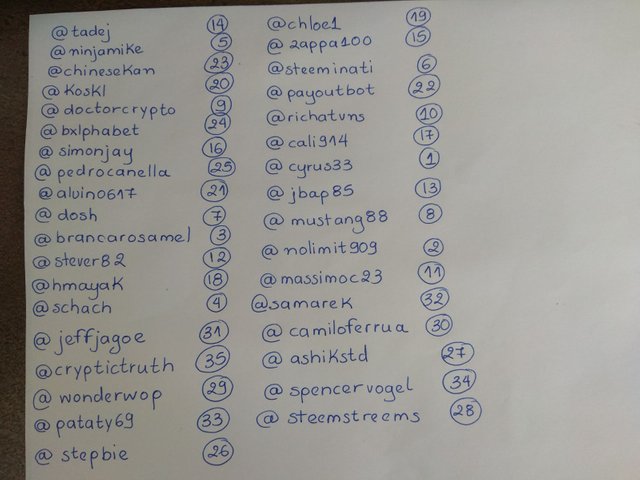 @tadej 14
@ninjamike 5
@chinesekan 23
@koskl 20
@doctorcrypto 9
@bxlphabet 24
@simonjay 16
@pedrocanella 25
@alvino617 21
@dosh 7
@brancarosamel 3
@stever82 12
@hmayak 18
@schach 4
@jeffjagoe 31
@cryptictruth 35
@wonderwop 29
@pataty69 33
@stepbie 26
@chloe1 19
@zappa100 15
@steeminati 6
@payoutbot 22
@richatvns 10
@cali914 17
@cyrus33 1
@jbap85 13
@mustang88 8
@nolimit909 2
@massimoc23 11
@samarek 32
@camiloferrua 30
@ashikstd 27
@spencervogel 34
@steemstreems 28